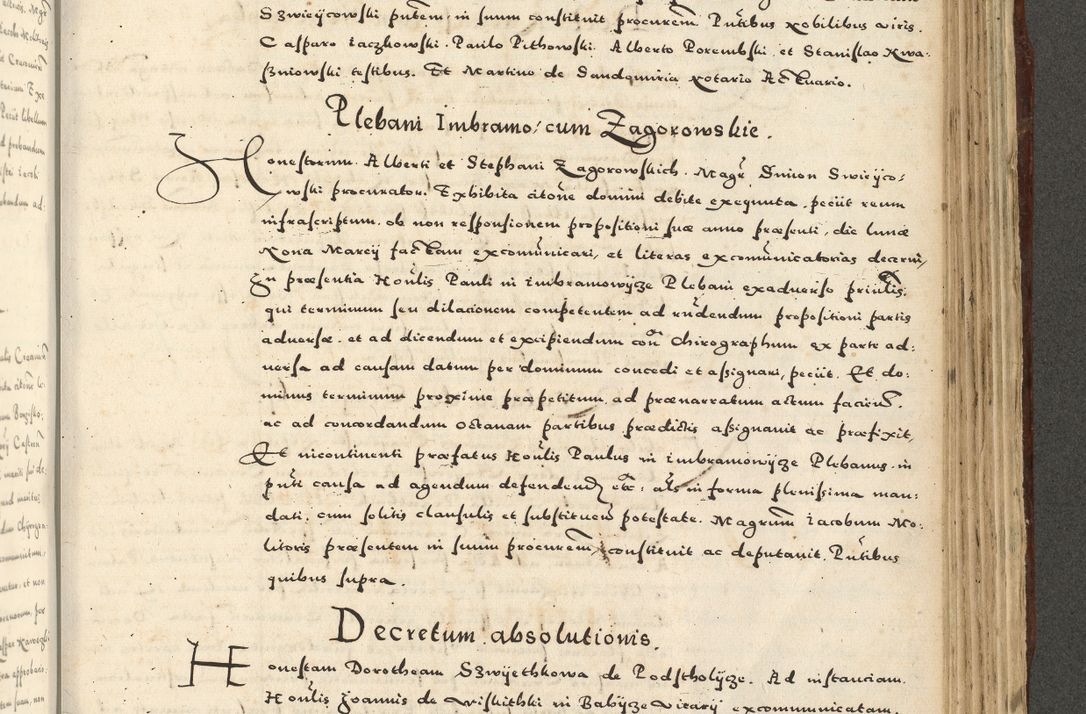 Szwieÿcowski pñtem, in suum constituit procurem̃. Pñtibus Nobilibus viris.
Casparo iaczkowski. Paulo Pithowski. Alberto Porembski. et Stanislao Kwa:
szniowski testibus. Et Martino de Sandomiria Notario Actuario.
Plebani Imbramo: cum Zagorowskie.
Honestorum. Alberti et Stephani Zagorowskich. Magr̃ Simon Swieÿco:
wski procurator. Exhibita citoñe domini debite exequuta, peciit reum
infrascriptum. ob non responsionem propositioni suæ anno præsenti, die lunæ
Nona Marcÿ factam excomũnicari, et literas excomũnicatorias decerni,
In præsentia Hoñlis Pauli in imbramowÿcze Plebani exaduerso prinlis.
qui terminum seu dilacionem competentem ad rñdendum propositioni partis
aduersæ. et ad dicendum et excipiendum coñ Chirographum ex parte ad:
uersa ad causam datum per dominum concedi et assignari, peciit. Et do:
minus terminum proxime præpetitum, ad prænarratum actum faciend̃.
ac ad concordandum octauam partibus prædictis assignauit ac præfixit,
Et nicontinenti præfatus Hoñlis Paulus in imbramowÿcze Plebanus, in
pñti causa ad agendum defendend̃ etc: als in forma plenissima man:
dati. cum solitis clausulis et substituen̄ potestate. Magrum̃ iacobum Mo:
litoris præsentem in suum procurem̃, constituit ac deputauit, Pñtibus
quibus supra.
Decretum absolutionis.
Honestam Dorotheam Szwÿethkowa de Podstholÿcze. Ad instanciam.
Hoñlis Joannis de Wiskithki in Babÿcze Vicarÿ excommunicatam.